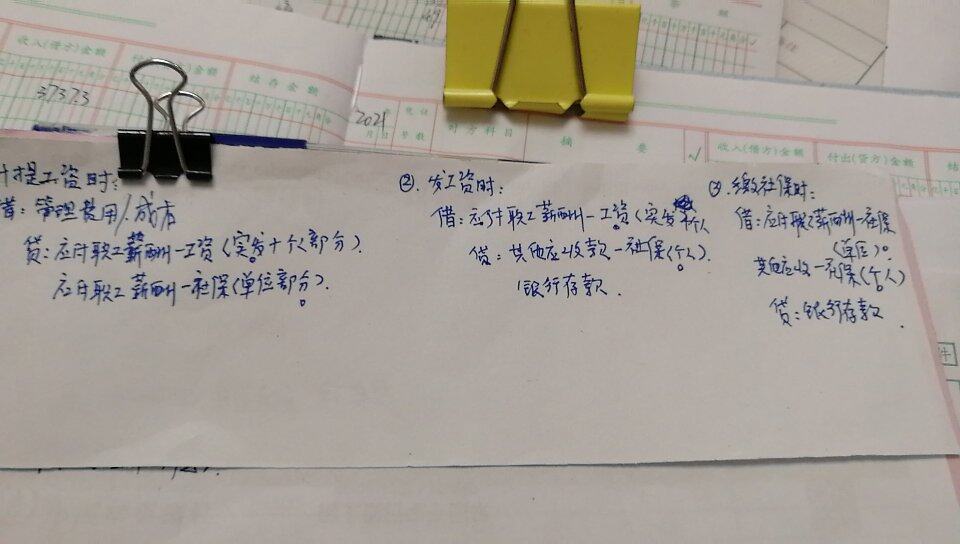 收入(借方)金额
结存金额
37373
2021
月
日
凭证
号数
对方科目
摘要
√
收入(借方)金额
付出(贷方)金额
结
计提工资时:
借: 管理费用/成本
贷: 应付职工薪酬-工资(实发+个人部分).
应付职工薪酬-社保(单位部分).
②. 发工资时:
借: 应付职工薪酬-工资(实发 个人
贷: 其他应收款-社保(个人)
银行存款.
③. 缴社保时:
借: 应付职工薪酬-社保
(单位)
其他应收-社保(个人)
贷: 银行存款.
件